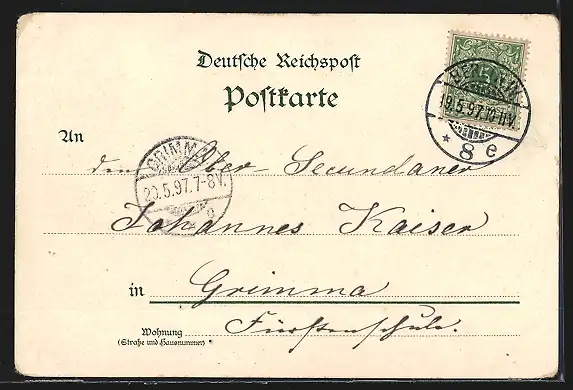 Deutsche Reichspost
Postkarte
BERLIN
9.5.97.10-11V.
* 8 e
An
GRIMMA
20.5.97.7-8V.
dem Ober-Secundaner
Johannes Kaiser
in Grimma
Fürstenschule.
Wohnung
(Straße und Hausnummer)